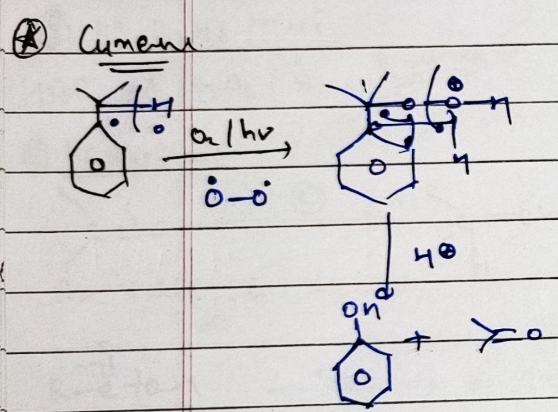 Cumene
H
O₂/hν
O–O
O O–H
H
H⊕
OH
+ O